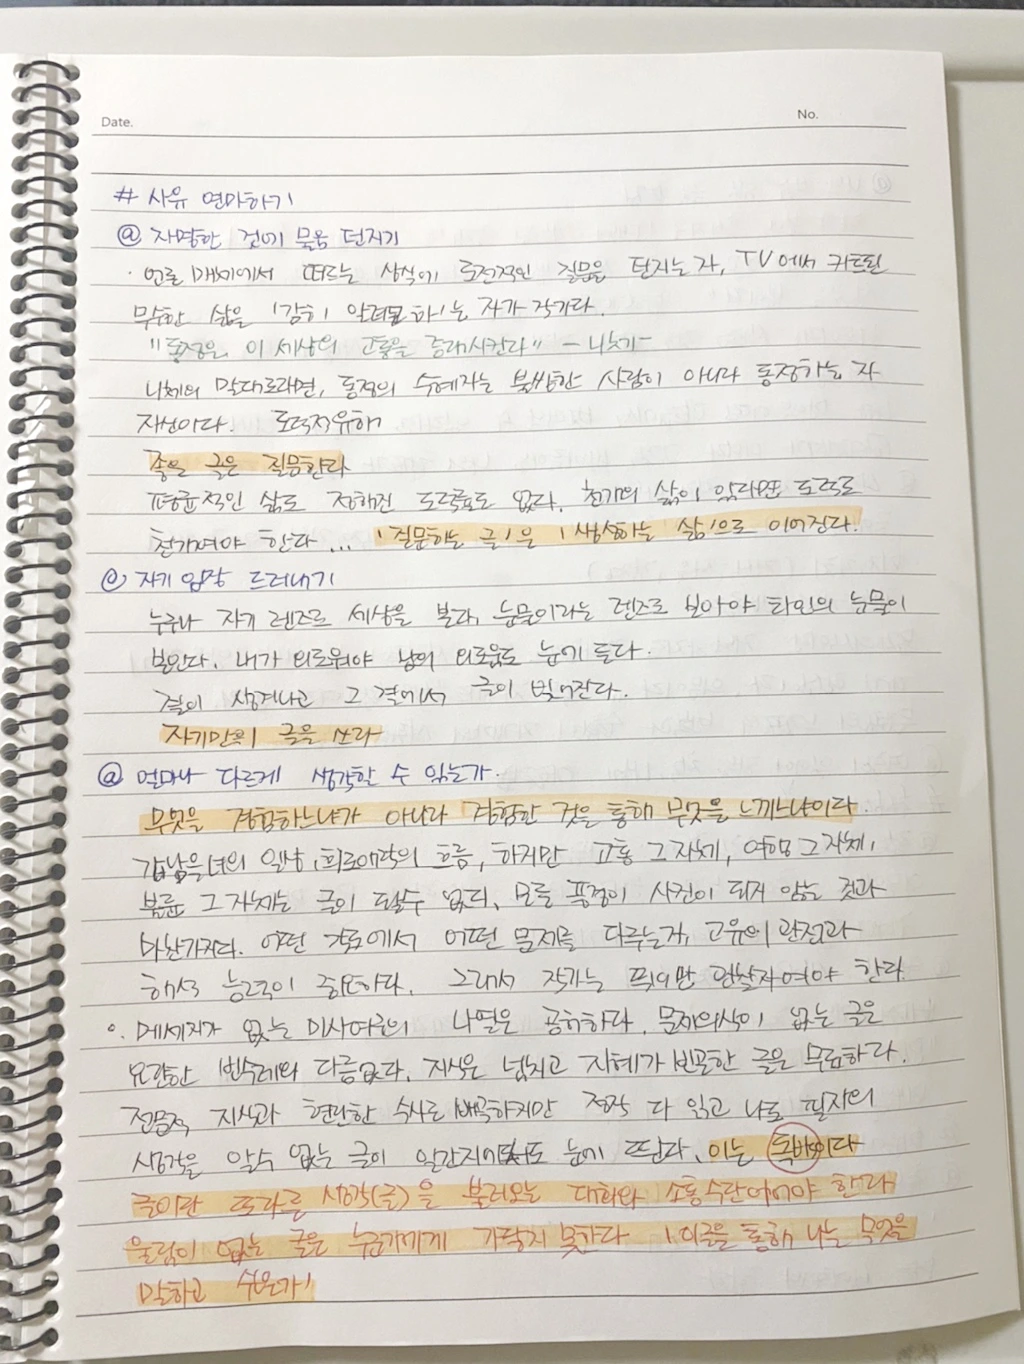 Date.
No.
# 사유 연마하기
@ 자명한 것에 물음 던지기
· 언론 매체에서 떠드는 상식에 도전적인 질문을 던지는 자, TV에서 커트된
무수한 삶을 '감히 알려고 하'는 자가 작가다.
"동정은 이 세상의 고통을 증대시킨다" - 니체 -
니체의 말대로라면, 동정의 수혜자는 불쌍한 사람이 아니라 동정하는 자
자신이다. 도덕적유해
좋은 글은 질문한다
평균적인 삶도 정해진 도덕률도 없다. 천개의 삶이 있다면 도덕도
천개여야 한다... '질문하는 글'은 '생성하는 삶'으로 이어진다.
@ 자기 입장 드러내기
누구나 자기 렌즈로 세상을 본다, 눈물이라는 렌즈로 보아야 타인의 눈물이
보인다. 내가 외로워야 남의 외로움도 눈에 든다.
결이 생겨나고 그 결에서 글이 빚어진다.
자기만의 글을 쓰라
@ 얼마나 다르게 생각할 수 있는가.
무엇을 경험하느냐가 아니라 경험한 것을 통해 무엇을 느끼느냐이다.
갑남을녀의 일상, 희로애락의 흐름, 하지만 고통 그 자체, 여행 그 자체,
불륜 그 자체는 글이 될수 없다, 모든 풍경이 사진이 되지 않는 것과
마찬가지다. 어떤 각도에서 어떤 문제를 다루는지, 고유의 관점과
해석 능력이 중요하다. 그래서 작가는 관찰자여야 한다
· 메세지가 없는 미사여구의 나열은 공허하다. 문제의식이 없는 글은
요란한 빈수레와 다름없다. 지식은 넘치고 지혜가 빈곤한 글은 무료하다.
전문적 지식과 현란한 수사로 빼곡하지만 정작 다 읽고 나도 필자의
생각을 알수 없는 글이 일간지에도 눈에 띈다. 이는 독백이다
글이란 또다른 생각(글)을 불러오는 대화와 소통수단이어야 한다
울림이 없는 글은 누군가에게 가닿지 못한다 '이글을 통해 나는 무엇을
말하고 싶은가'